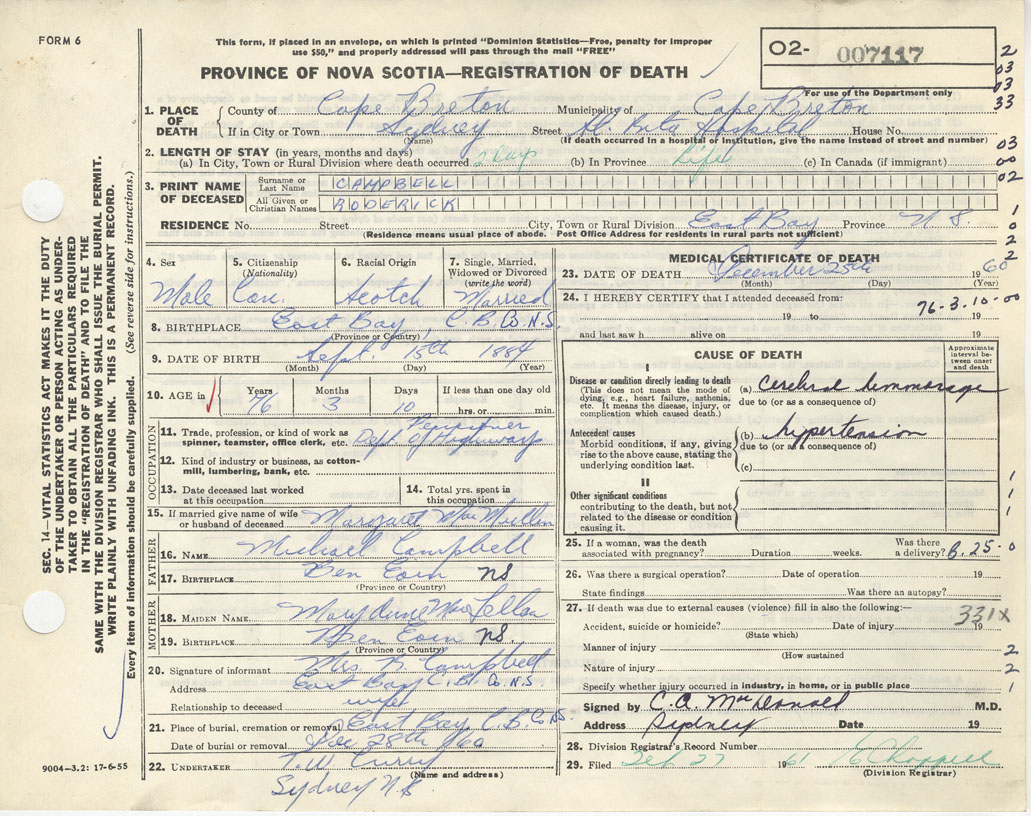 FORM 6
This form, if placed in an envelope, on which is printed "Dominion Statistics—Free, penalty for improper
use $50," and properly addressed will pass through the mail "FREE"
PROVINCE OF NOVA SCOTIA—REGISTRATION OF DEATH
O2- 007117
For use of the Department only
2
03
03
33
03
00
02
1
0
2
2
1. PLACE OF DEATH
County of Cape Breton Municipality of Cape Breton
If in City or Town Sydney Street St. Rita Hospital House No.
(Name) (If death occurred in a hospital or institution, give the name instead of street and number)
2. LENGTH OF STAY (in years, months and days)
(a) In City, Town or Rural Division where death occurred 2 days (b) In Province Life (c) In Canada (if immigrant)
3. PRINT NAME OF DECEASED
Surname or Last Name CAMPBELL
All Given or Christian Names RODERICK
RESIDENCE No. Street City, Town or Rural Division East Bay Province N S.
(Residence means usual place of abode. Post Office Address for residents in rural parts not sufficient)
4. Sex Male
5. Citizenship (Nationality) Can.
6. Racial Origin Scotch
7. Single, Married, Widowed or Divorced (write the word) Married
8. BIRTHPLACE East Bay, C.B. Co. N.S
(Province or Country)
9. DATE OF BIRTH Sept. 15th 1884
(Month) (Day) (Year)
10. AGE in Years 76 Months 3 Days 10 If less than one day old
hrs. or min.
OCCUPATION
11. Trade, profession, or kind of work as spinner, teamster, office clerk, etc. Pensioner Dept of Highways
12. Kind of industry or business, as cotton-mill, lumbering, bank, etc.
13. Date deceased last worked at this occupation
14. Total yrs. spent in this occupation
15. If married give name of wife or husband of deceased Margaret MacMullin
FATHER
16. NAME Michael Campbell
17. BIRTHPLACE Ben Eoin NS
(Province or Country)
MOTHER
18. MAIDEN NAME Mary Anne MacLellan
19. BIRTHPLACE Ben Eoin NS.
(Province or Country)
20. Signature of informant Mrs. R. Campbell
Address East Bay C.B. Co. N.S
Relationship to deceased wife
21. Place of burial, cremation or removal East Bay C.B. Co NS.
Date of burial or removal Dec 28th /60
22. UNDERTAKER T.W. Curry
(Name and address)
Sydney N.S
MEDICAL CERTIFICATE OF DEATH
23. DATE OF DEATH December 25th 1960
(Month) (Day) (Year)
24. I HEREBY CERTIFY that I attended deceased from:
76-3-10-00
19 to 19
and last saw h alive on 19
CAUSE OF DEATH
Approximate interval between onset and death
I
Disease or condition directly leading to death
(This does not mean the mode of dying, e.g., heart failure, asthenia, etc. It means the disease, injury, or complication which caused death.)
(a) Cerebral hemmorage
due to (or as a consequence of)
Antecedent causes
Morbid conditions, if any, giving rise to the above cause, stating the underlying condition last.
(b) hypertension
due to (or as a consequence of)
(c)
II
Other significant conditions contributing to the death, but not related to the disease or condition causing it.
1
1
1
25. If a woman, was the death associated with pregnancy? Duration weeks. Was there a delivery? B.25-0
26. Was there a surgical operation? Date of operation 19
State findings Was there an autopsy?
27. If death was due to external causes (violence) fill in also the following:—
331X
Accident, suicide or homicide? Date of injury 19
(State which)
Manner of injury 2
(How sustained
Nature of injury 2
Specify whether injury occurred in industry, in home, or in public place 1
Signed by C.A. MacDonald M.D.
Address Sydney Date 19
28. Division Registrar's Record Number
29. Filed Feb 27 1961 Chappell
(Division Registrar)
SEC. 14—VITAL STATISTICS ACT MAKES IT THE DUTY
OF THE UNDERTAKER OR PERSON ACTING AS UNDER-
TAKER TO OBTAIN ALL THE PARTICULARS REQUIRED
IN THE "REGISTRATION OF DEATH" AND TO FILE THE
SAME WITH THE DIVISION REGISTRAR WHO SHALL ISSUE THE BURIAL PERMIT.
WRITE PLAINLY WITH UNFADING INK. THIS IS A PERMANENT RECORD.
Every item of information should be carefully supplied. (See reverse side for instructions.)
9004-3.2: 17-6-55